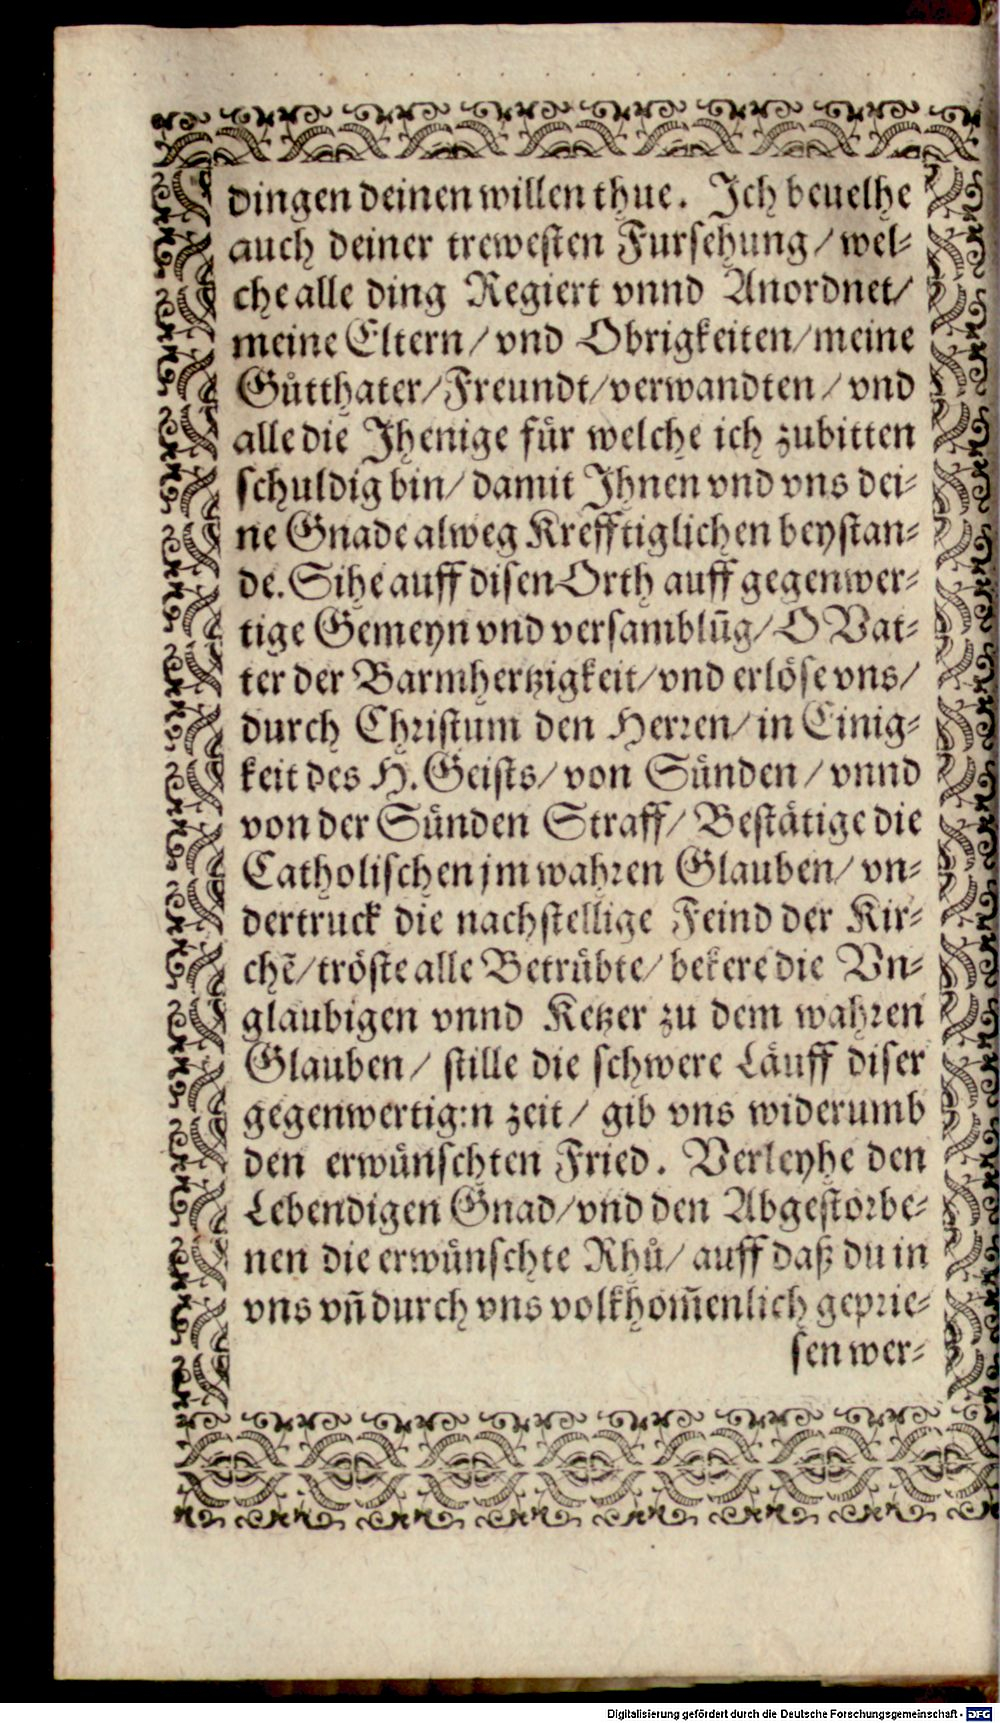 dingen deinen willen thue. Ich beuelhe
auch deiner trewesten Fursehung/ wel⸗
che alle ding Regiert vnnd Anordnet/
meine Eltern/ vnd Obrigkeiten/ meine
Gůtthater/ Freundt/ verwandten/ vnd
alle die Jhenige für welche ich zubitten
schuldig bin/ damit Jhnen vnd vns dei⸗
ne Gnade alweg Krefftiglichen beystan⸗
de. Sihe auff disen Orth auff gegenwer⸗
tige Gemeyn vnd versamblũg/ O Vat⸗
ter der Barmhertzigkeit/ vnd erlöse vns/
durch Christum den Herren/ in Einig⸗
keit des H. Geists/ von Sünden/ vnnd
von der Sünden Straff/ Bestätige die
Catholischen jm wahren Glauben/ vn⸗
dertruck die nachstellige Feind der Kir⸗
chẽ/ tröste alle Betrübte/ bekere die Vn⸗
glaubigen vnnd Ketzer zu dem wahren
Glauben/ stille die schwere Läuff diser
gegenwertig:n zeit/ gib vns widerumb
den erwünschten Fried. Verleyhe den
Lebendigen Gnad/ vnd den Abgestorbe⸗
nen die erwünschte Rhů/ auff daß du in
vns vñ durch vns volkhom̃enlich geprie⸗
sen wer⸗
Digitalisierung gefördert durch die Deutsche Forschungsgemeinschaft - DFG